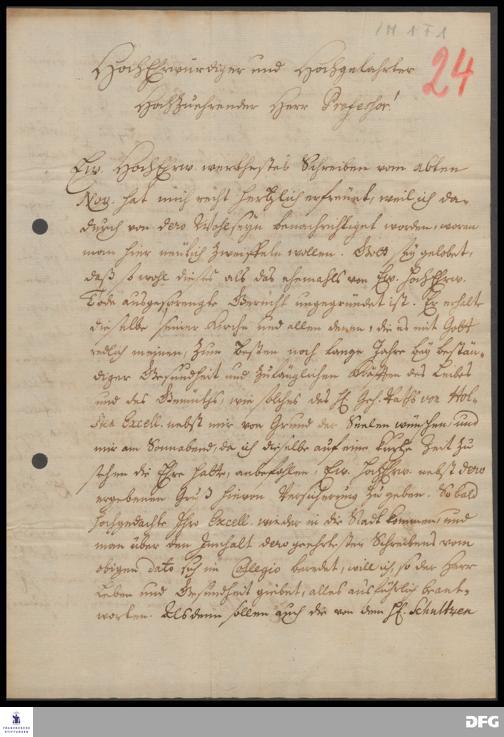 1 H 1 F 1
24
HochEhrwürdiger und Hochgelahrter
HochZuehrender Herr Professor!
Ew. HochEhrw. werthestes Schreiben vom 26ten
Nov. hat mich recht hertzlich erfreuet, weil ich da-
durch von dero Wohlseyn benachrichtiget worden, woran
man hier neulich zweiffeln wollen. Gott sey gelobet,
daß so wohl dieses als das ehemahls von Ew. HochEhrw.
Tode ausgesprengte Gerücht ungegründet ist. Er erhalte
dieselbe seiner Kirche und allen denen, die es mit Gott
redlich meinen, zum Besten noch lange Jahre bey bestän-
diger Gesundheit und zulänglichen Kräfften des Leibes
und des Gemüths, wie solches des H. Geh. Raths von Hol-
Excell. nebst mir von Grund der Seelen wünschen, und
mir am Sonnabend, da ich dieselbe auf eine kurtze Zeit zu
sehen die Ehre hatte, anbefohlen, Ew. HochEhrw. nebst dero
ergebenen Gruß hievon Versicherung zu geben. So bald
hochgedachte Ihro Excell. wieder in die Stadt kommen, und
man über den Innhalt dero geehrtesten Schreibens vom
obigen dato sich im Collegio beredet, will ich, so der Herr
Leben und Gesundheit giebet, alles ausführlich beant-
worten. Alsdenn sollen auch die von dem H. Schultzen
FRANCKESCHE
STIFTUNGEN
DFG